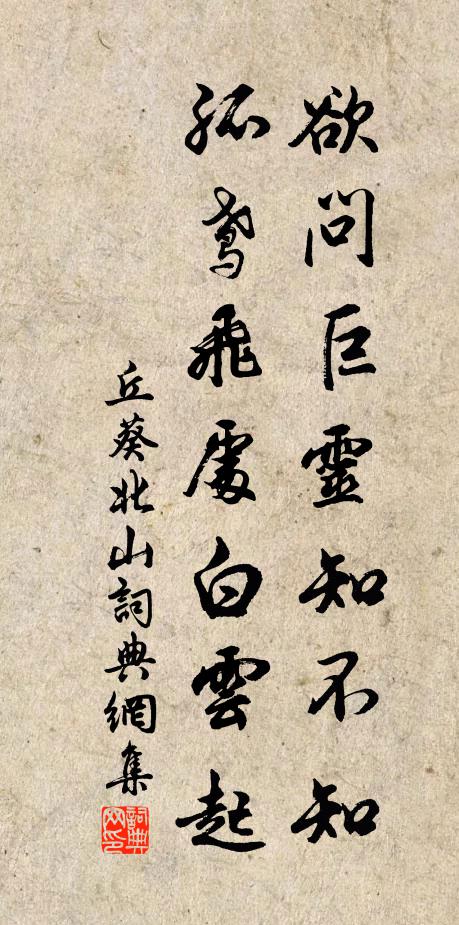 欲問巨靈知不知
孤鳶飛處白雲起
丘葵北山詞典網集
詞典網印